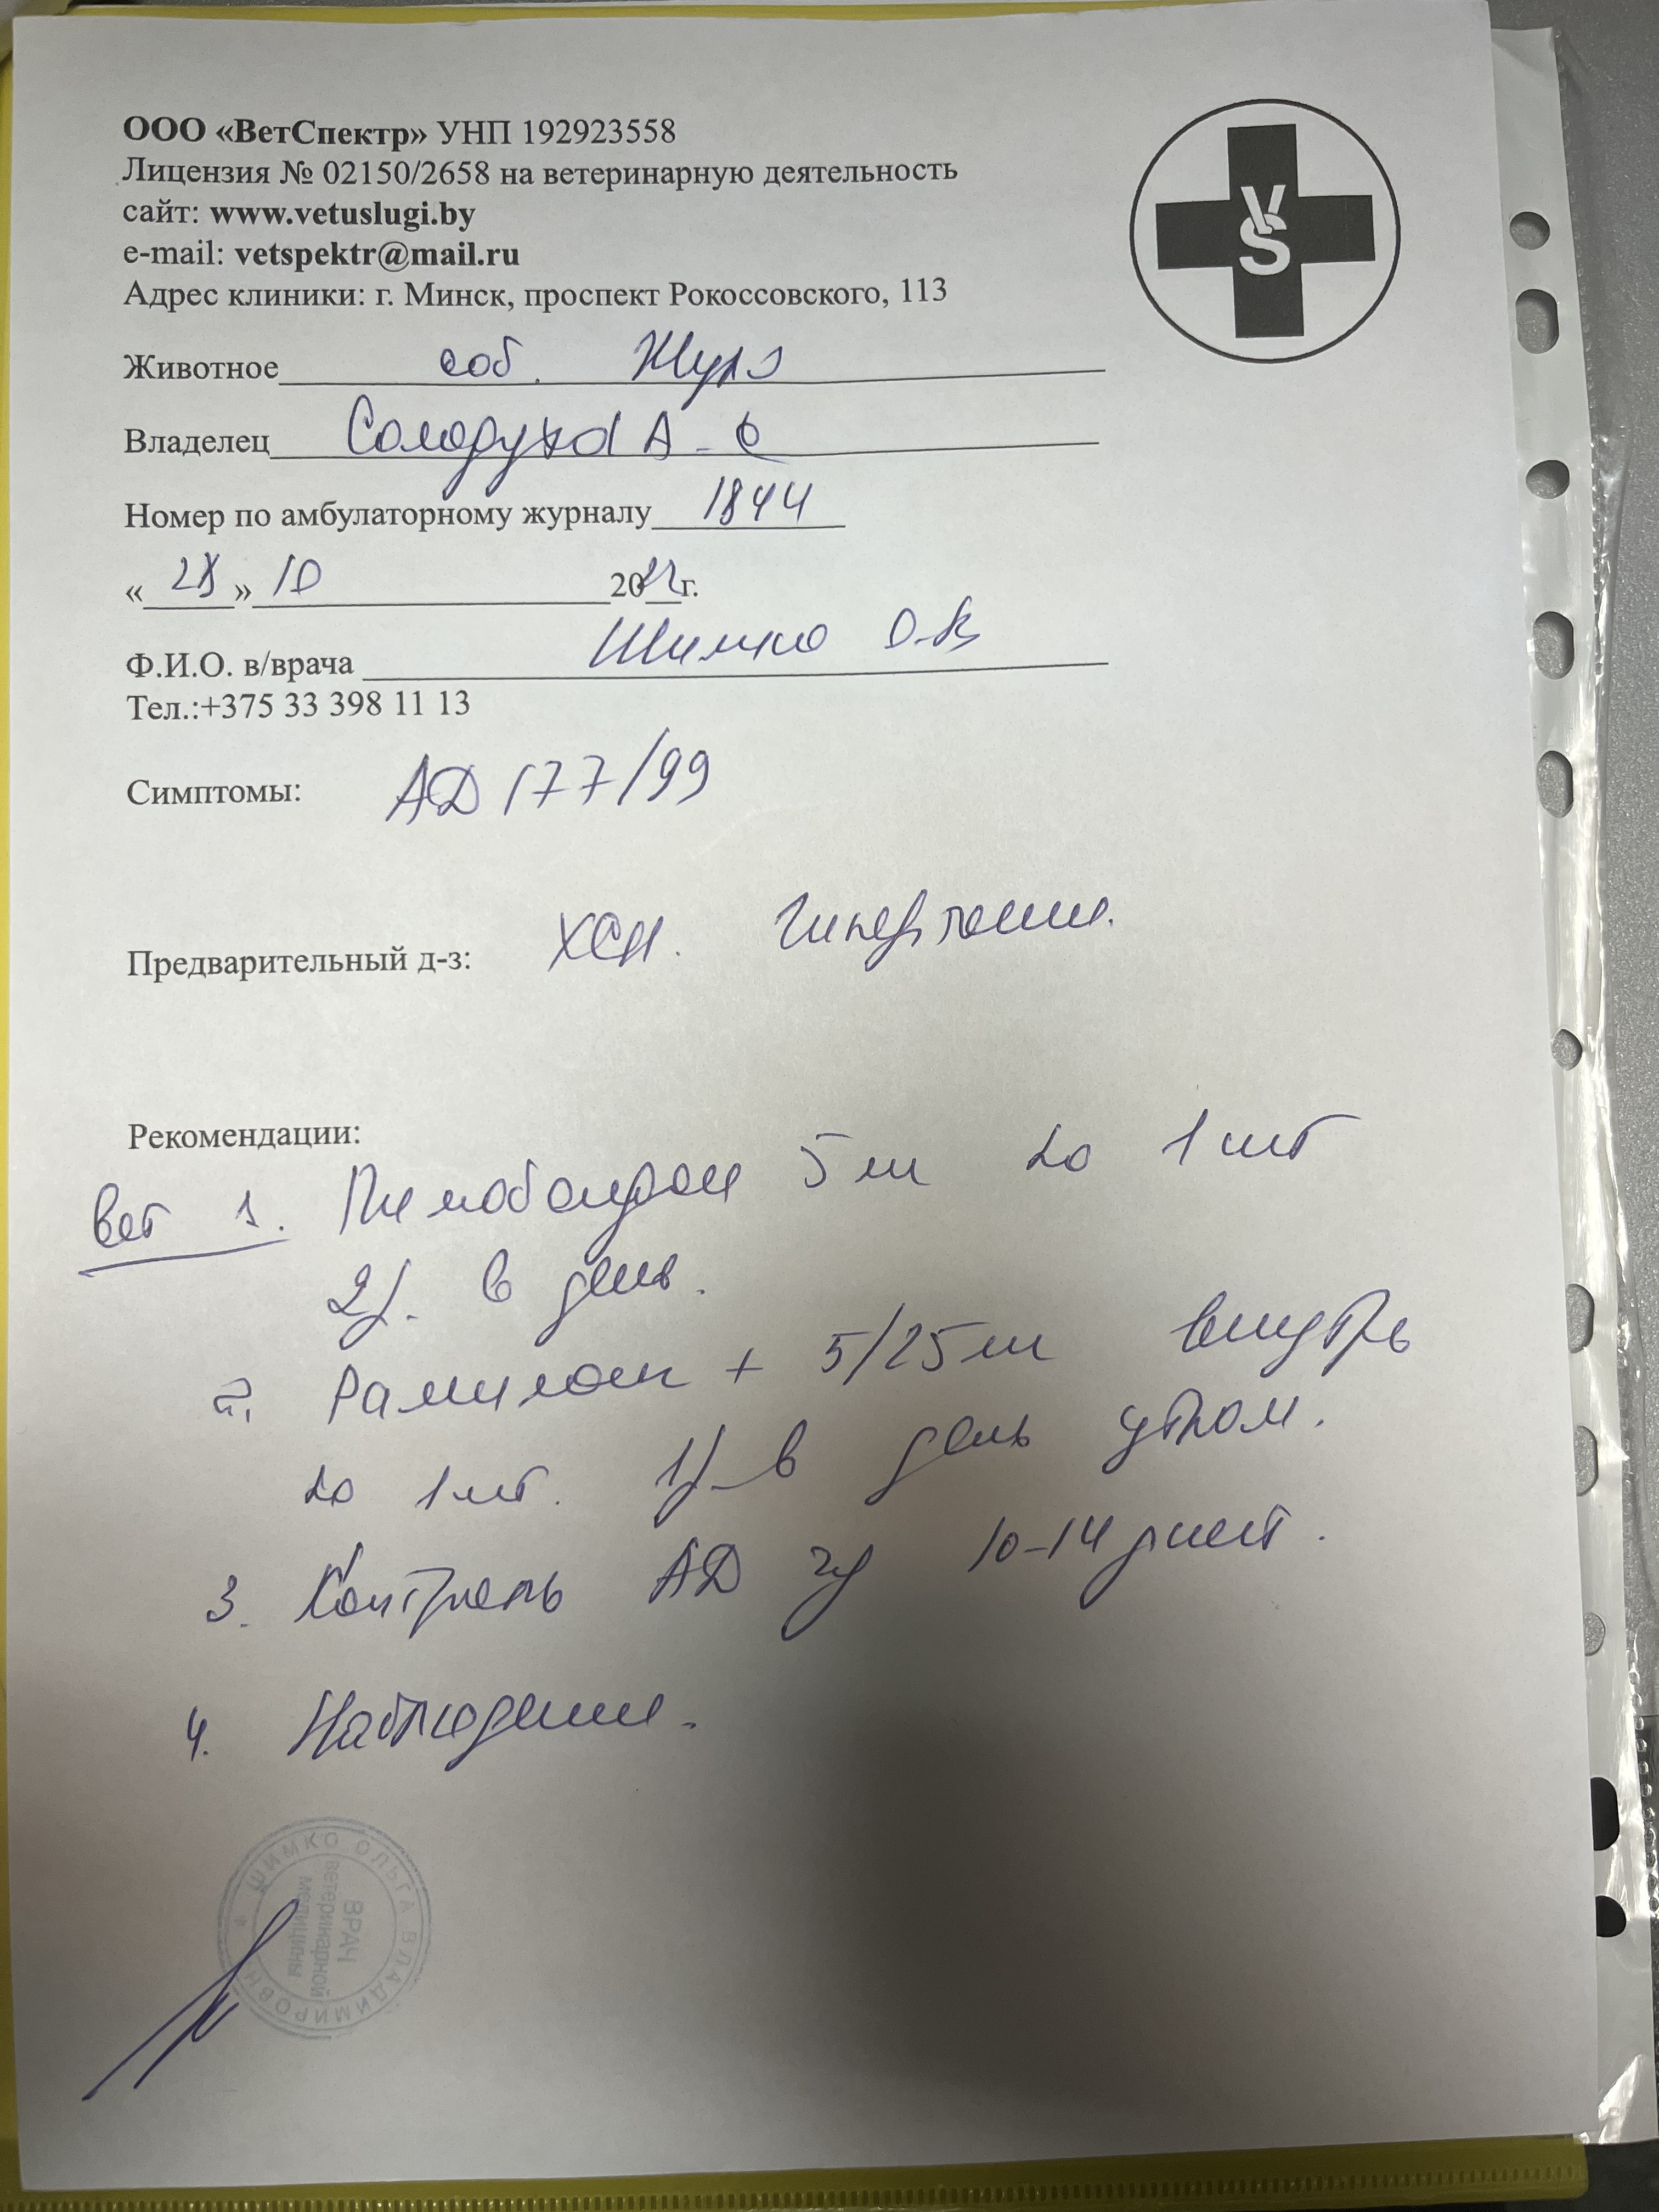 ООО «ВетСпектр» УНП 192923558
Лицензия № 02150/2658 на ветеринарную деятельность
сайт: www.vetuslugi.by
e-mail: vetspektr@mail.ru
Адрес клиники: г. Минск, проспект Рокоссовского, 113
VS
Животное соб. Жуля
Владелец Солодуха А. С
Номер по амбулаторному журналу 1844
«28» 10 20 г.
Ф.И.О. в/врача Шимко О.В
Тел.:+375 33 398 11 13
Симптомы: АД 177/99
Предварительный д-з: ХСН. Гипертензия.
Рекомендации:
Вет 1. Пимобендан 5 мг по 1 шт
2р. в день.
2. Рамилонг + 5/25 мг внутрь
по 1 шт. 1р. в день утром.
3. Контроль АД чз 10-14 дней.
4. Наблюдение.
ШИМКО ОЛЬГА ВЛАДИМИРОВН
ВРАЧ
ветеринарной
медицины